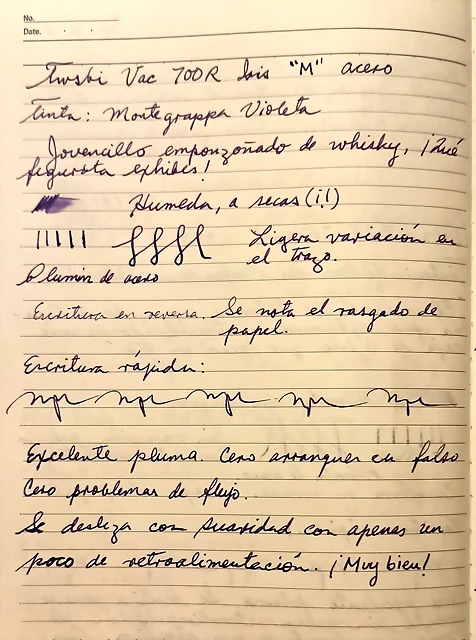 No.
Date.
Twsbi Vac 700R Iris "M" acero
Tinta: Montegrappa Violeta
Jovencillo emponzoñado de whisky, ¡Qué
figurota exhibes!
Humeda, a secas (¡!)
Ligera variación en
el trazo.
Plumin de acero
Escritura en reversa. Se nota el rasgado de
papel.
Escritura rápida:
Excelente pluma. Cero arranques en falso
Cero problemas de flujo.
Se desliza con suavidad con apenas un
poco de retroalimentación. ¡Muy bien!